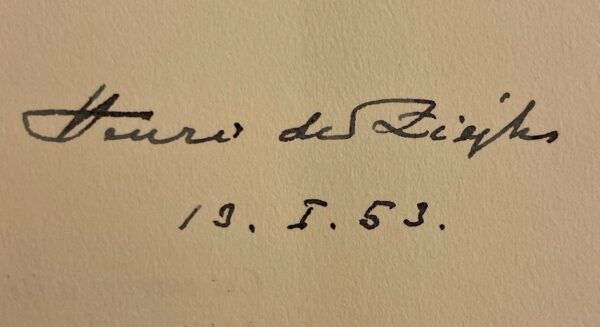 Henri de Ziejks
13. I. 53.